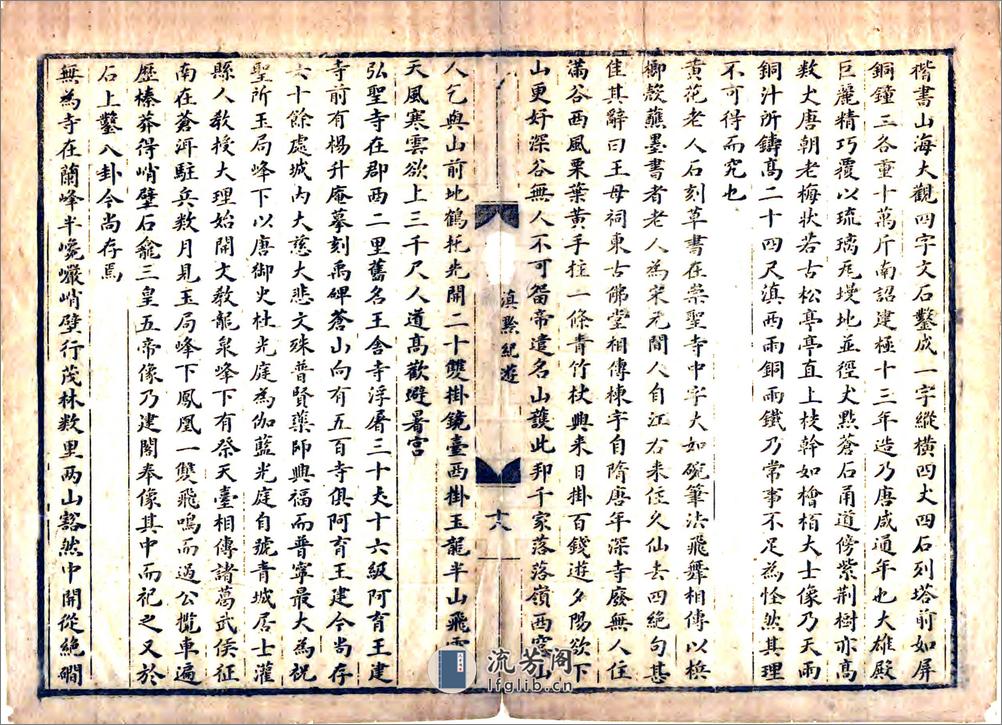 楷書山海大觀四字文石鑿成一字縱橫四丈四石列塔前如屏
銅鐘三各重十萬斤南詔建極十三年造乃唐咸通年也大雄殿
巨麗精巧覆以琉璃瓦墁地並徑丈㸃蒼石甬道傍紫荆樹亦高
数丈唐朝老梅狀若古松亭亭直上枝幹如檜栢大士像乃天雨
銅汁所鑄高二十四尺滇西雨銅雨鐵乃常事不足為怪然其理
不可得而究也
黃花老人石刻草書在崇聖寺中字大如碗筆法飛舞相傳以梹
榔殼蘸墨書者老人為宋元間人自江右来住久仙去四絶句甚
佳其辭曰王母祠東古佛堂相傳棟宇自隋唐年深寺廢無人住
滿谷西風栗葉黃手拄一條青竹杖興来日掛百錢遊夕陽欲下
山更好深谷無人不可畱帝遣名山護此邦千家落落嶺西窓山
人乞與山前地鶴托先開二十雙掛鏡臺西掛玉龍半山飛
天風寒雲欲上三千尺人道高歡避暑宮
弘聖寺在郡西二里舊名王舍寺浮屠三十夫十六級阿育王建
寺前有楊升庵摹刻禹碑蒼山向有五百寺俱阿育王建今尚存
六十餘處城内大慈大悲文殊普賢藥師興福而普寧最大為祝
聖所玉局峰下以唐御史杜光庭為伽藍光庭自號青城居士灌
縣人教授大理始開文教龍泉峰下有祭天臺相傳諸葛武侯征
南在蒼洱駐兵数月見玉局峰下鳳凰一雙飛鳴而過公攬車遍
歷榛莽得峭壁石龕三皇五帝像乃建閣奉像其中而祀之又於
石上鑿八卦今尚存焉
無為寺在蘭峰半巉巖峭壁行茂林数里两山豁然中開從絶磵
滇黔紀遊
十八
流芳阁
lfglib.cn